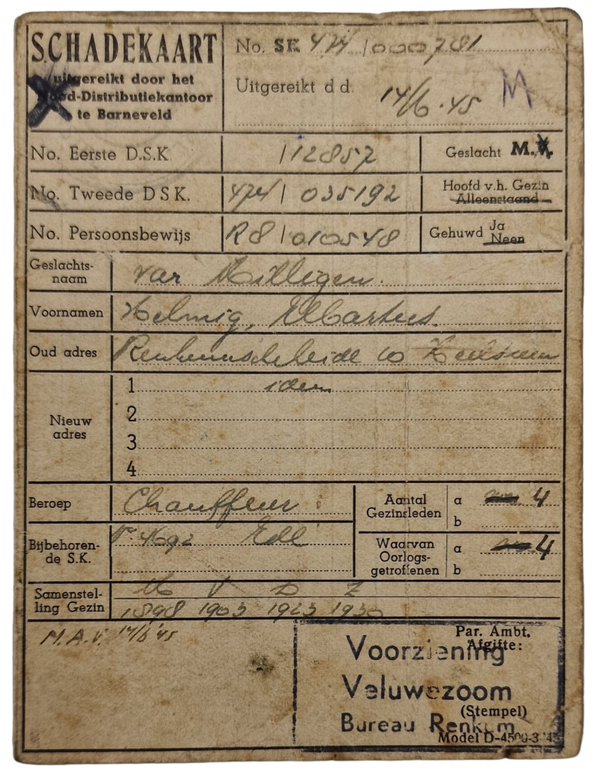 SCHADEKAART
uitgereikt door het
Nood-Distributiekantoor
te Barneveld
No. SK 474 / 000781
Uitgereikt d d. 14/6.45 M
No. Eerste D.S.K 112857
Geslacht M.V.
No. Tweede D S K. 474 / 035192
Hoofd v.h. Gezin
Alleenstaand
No. Persoonsbewijs R8 / 010548
Gehuwd Ja
Neen
Geslachts-
naam van Milligen.
Voornamen Helmig, Elbartus.
Oud adres 10
Nieuw
adres
1 idem
2
3
4
Beroep Chauffeur
Aantal
Gezinsleden
a 4
b
Bijbehoren-
de S.K.
Waarvan
Oorlogs-
getroffenen
a 4
b
Samenstel-
ling Gezin M V D Z
1898 1903 1923 1930
M.A.V. 14/6 '45
Par. Ambt.
Afgifte:
Voorziening
Veluwezoom
(Stempel)
Bureau Renkum
Model D-4506-3 '45